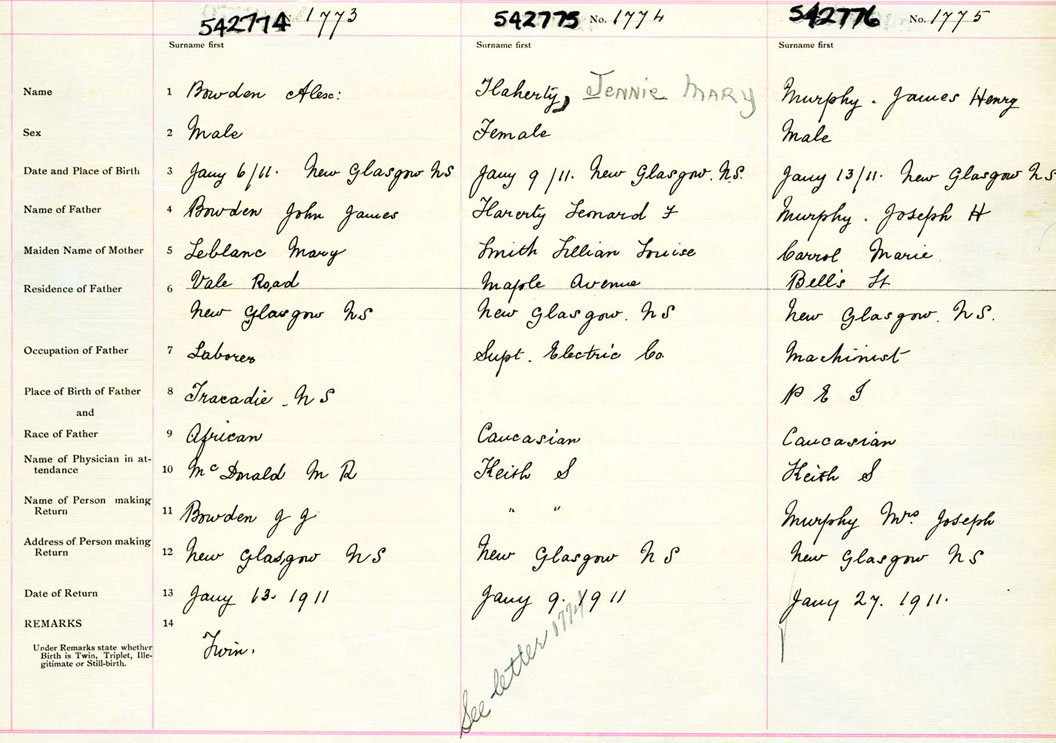 542774 No. 1773 542775 No. 1774 542776 No. 1775
Surname first Surname first Surname first
Name 1 Bowden Alex: Flaherty, Jennie Mary Murphy. James Henry
Sex 2 Male Female Male
Date and Place of Birth 3 Jany 6/11. New Glasgow NS Jany 9/11. New Glasgow. N.S. Jany 13/11. New Glasgow NS
Name of Father 4 Bowden John James Flarerty Lenard F Murphy. Joseph H
Maiden Name of Mother 5 Leblanc Mary Smith Lillian Louise Carrol Marie
Residence of Father 6 Vale Road Maple Avenue Bell's St
New Glasgow NS New Glasgow. NS New Glasgow. NS.
Occupation of Father 7 Laborer Supt. Electric Co Machinist
Place of Birth of Father 8 Tracadie. NS P E I
and
Race of Father 9 African Caucasian Caucasian
Name of Physician in at-
tendance 10 McDonald M R Keith S Keith S
Name of Person making
Return 11 Bowden J J " " Murphy Mrs Joseph
Address of Person making
Return 12 New Glasgow NS New Glasgow NS New Glasgow NS
Date of Return 13 Jany 13. 1911 Jany 9. 1911 Jany 27. 1911.
REMARKS 14
Under Remarks state whether
Birth is Twin, Triplet, Ille-
gitimate or Still-birth.
Twin.
See letter 1774